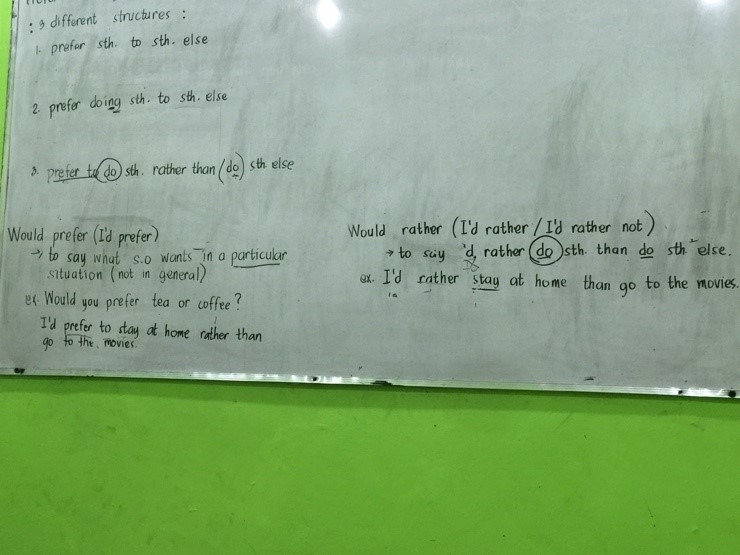 : 3 different structures :
1. prefer sth. to sth. else
2. prefer doing sth. to sth. else
3. prefer to do sth. rather than (do) sth else
Would prefer (I'd prefer)
→ to say what s.o wants in a particular
situation (not in general)
ex. Would you prefer tea or coffee?
I'd prefer to stay at home rather than
go to the movies.
Would rather (I'd rather / I'd rather not)
→ to say 'd rather do sth. than do sth. else.
ex. I'd rather stay at home than go to the movies.